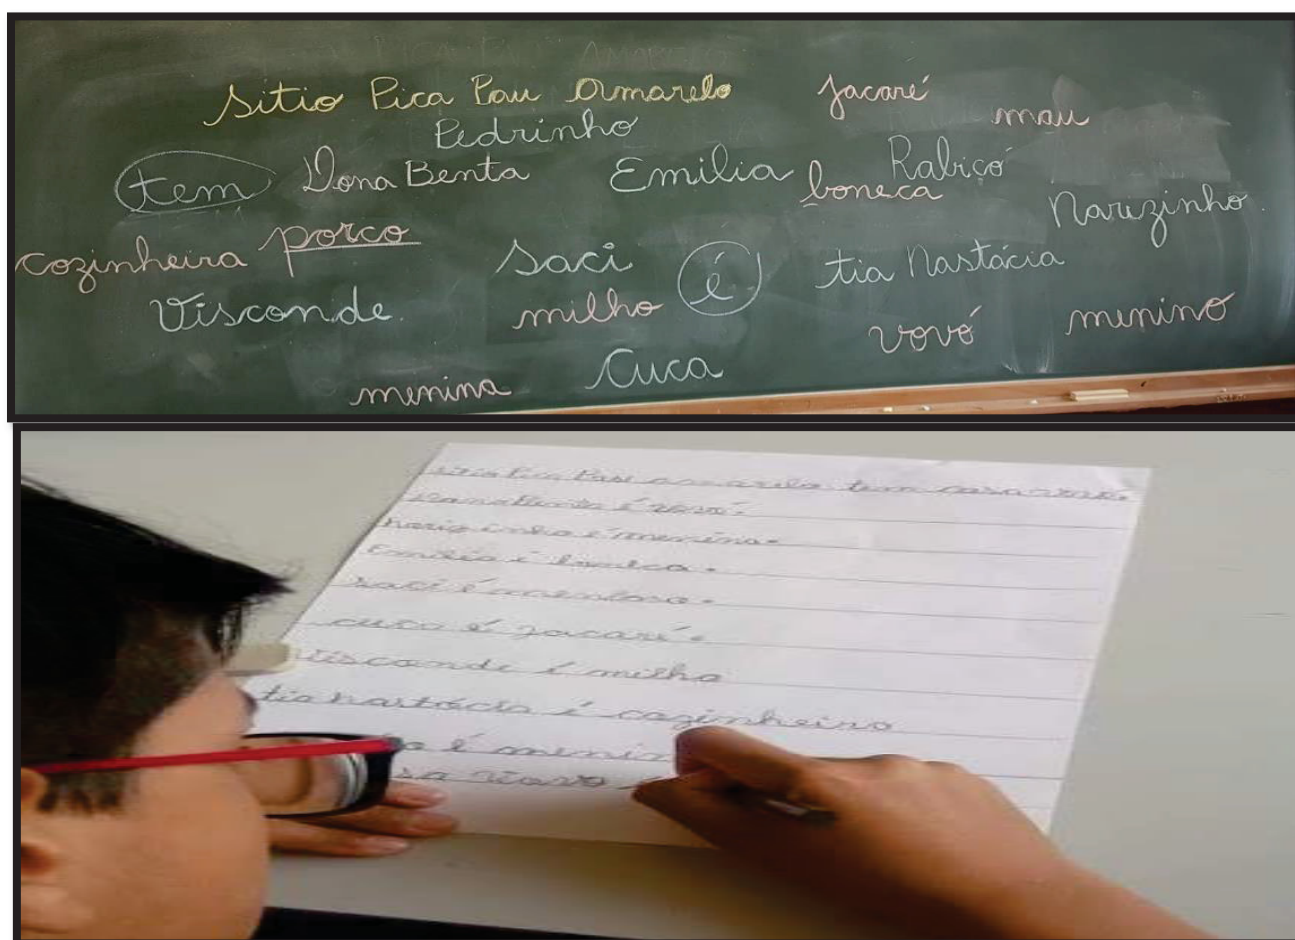 Sitio Pica Pau Amarelo jacaré mau
Pedrinho
tem Dona Benta Emilia boneca Rabicó
Narizinho.
cozinheira porco Saci é tia Nastácia
Visconde. milho vovó menino
menina Cuca
sitio Pica Pau amarelo tem
Dona Benta é vovó.
narizinho é menina.
Emilia é boneca.
saci é
cuca é jacaré.
visconde é milho
tia nastácia é cozinheira
é menino